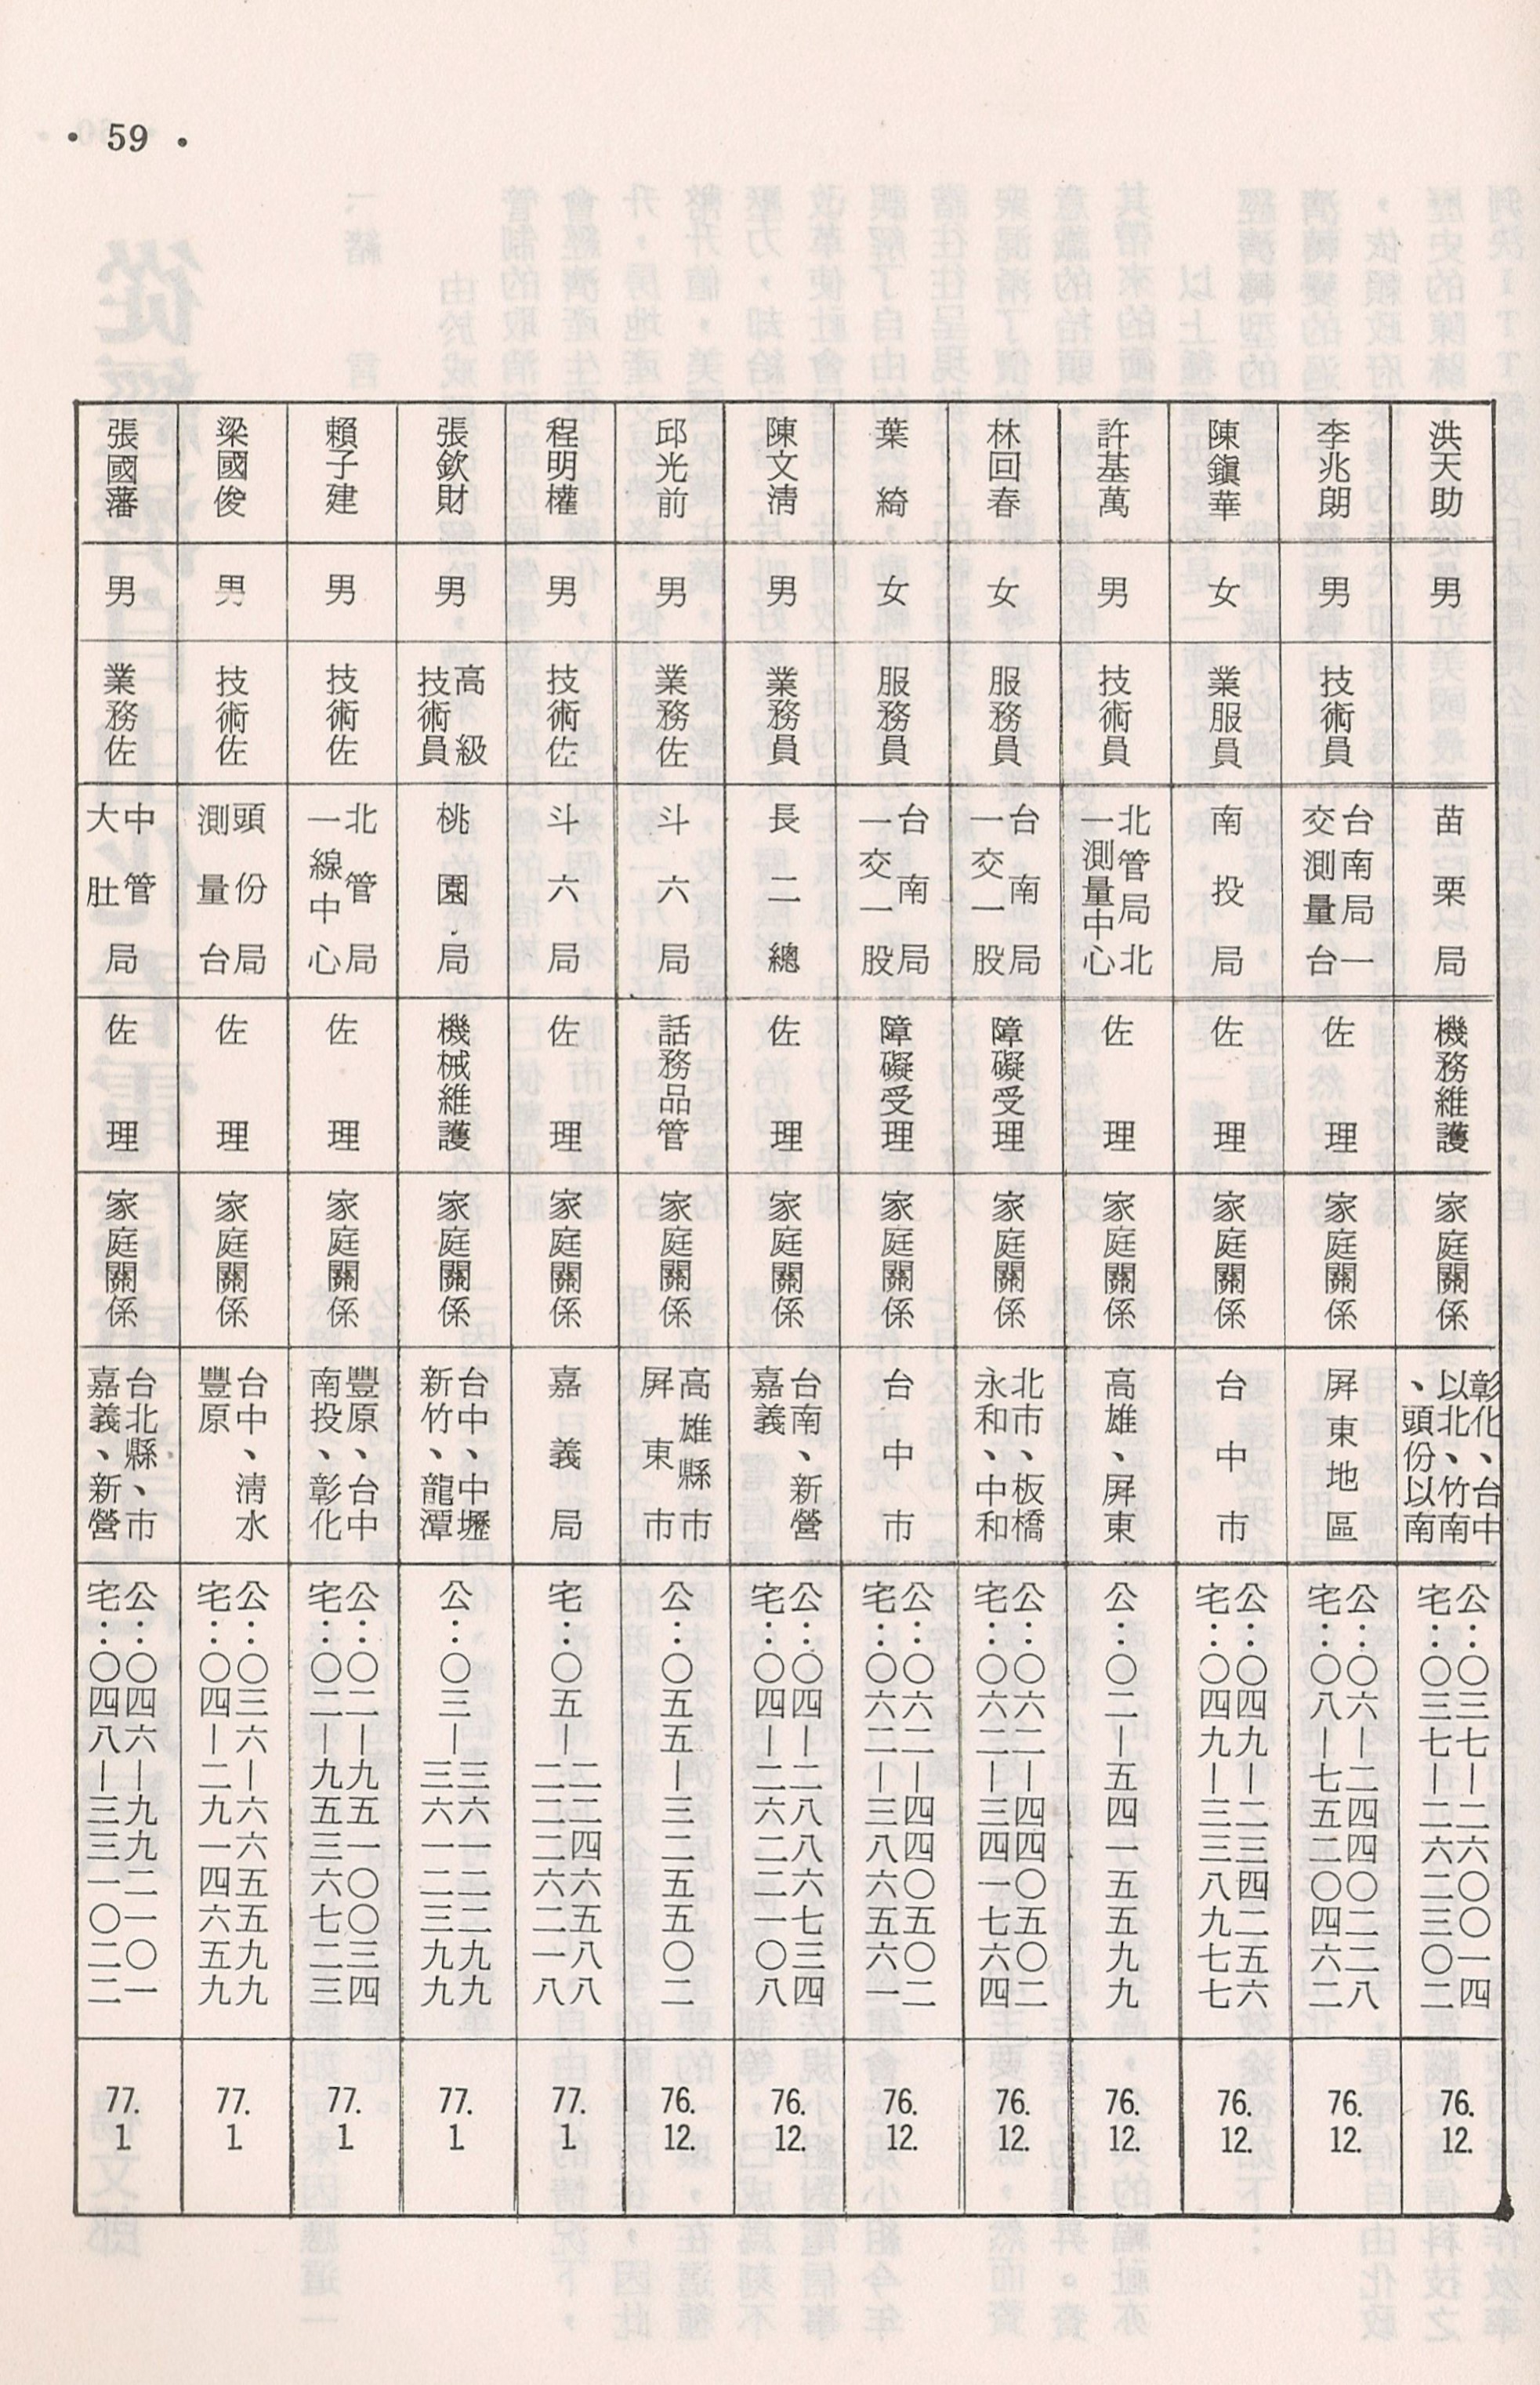 • 59 •
洪天助
男
苗栗局
機務維護
家庭關係
彰化、台中
以北、竹南
、頭份以南
公：〇三七—二六〇〇一四
宅：〇三七—二六二三〇二
76.12.
李兆朗
男
技術員
台南局一
交測量台
佐理
家庭關係
屏東地區
公：〇六—二四四〇二二八
宅：〇八—七五二〇四六二
76.12.
陳鎭華
女
業服員
南投局
佐理
家庭關係
台中市
公：〇四九—二三四二五六
宅：〇四九—三三八九七七
76.12.
許基萬
男
技術員
北管局北
一測量中心
佐理
家庭關係
高雄、屏東
公：〇二—五四一五五九九
76.12.
林回春
女
服務員
台南局
一交一股
障礙受理
家庭關係
北市、板橋
永和、中和
公：〇六二—四四〇五〇二
宅：〇六二—三四一七六四
76.12.
葉綺
女
服務員
台南局
一交一股
障礙受理
家庭關係
台中市
公：〇六二—四四〇五〇二
宅：〇六二—三八六五六一
76.12.
陳文淸
男
業務員
長二總
佐理
家庭關係
台南、新營
嘉義
公：〇四—二八八六七三四
宅：〇四—二六二二一〇八
76.12.
邱光前
男
業務佐
斗六局
話務品管
家庭關係
高雄縣市
屏東市
公：〇五五—三二五五〇二
76.12.
程明權
男
技術佐
斗六局
佐理
家庭關係
嘉義局
宅：〇五—二二四六五八八
二二二六二一八
77.1.
張欽財
男
高級
技術員
桃園局
機械維護
家庭關係
台中、中壢
新竹、龍潭
公：〇三—三六一二二九九
三六一二三九九
77.1.
賴子建
男
技術佐
北管局
一線中心
佐理
家庭關係
豐原、台中
南投、彰化
公：〇二—九五一〇〇三四
宅：〇二—九五三六七二三
77.1.
梁國俊
男
技術佐
頭份局
測量台
佐理
家庭關係
台中、淸水
豐原
公：〇三六—六六五五九九
宅：〇四—二九一四六五九
77.1.
張國藩
男
業務佐
中管局
大肚
佐理
家庭關係
台北縣、市
嘉義、新營
公：〇四六—九九二一〇一
宅：〇四八—三三一〇二二
77.1.